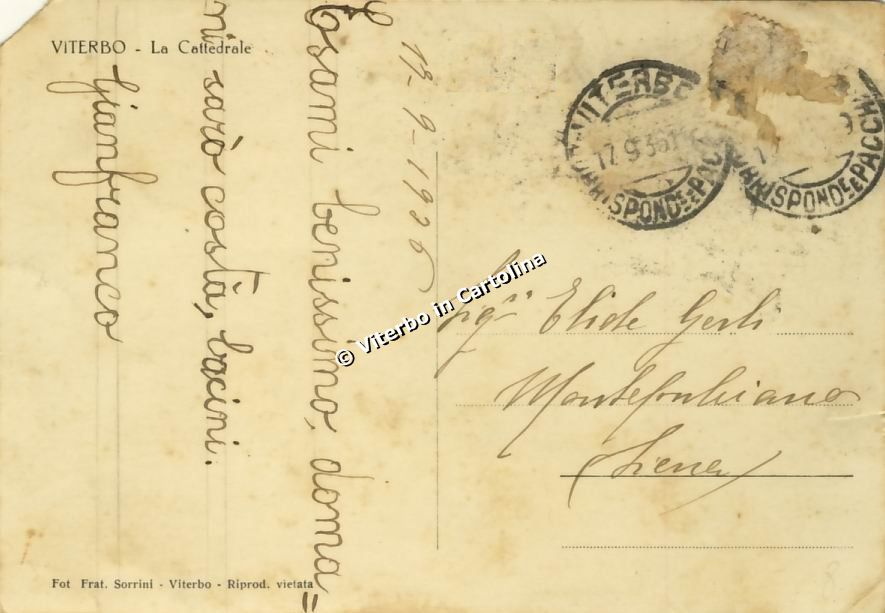 VITERBO - La Cattedrale
Esami benissimo, doma=
ni sarò costà, bacini.
Gianfranco
VITERBO
17.9.36
CORRISPONDE E PACCHI
CORRISPONDE E PACCHI
Elide Gerli
Montepulciano
(Siena)
© Viterbo in Cartolina
Fot Frat. Sorrini - Viterbo - Riprod. vietata